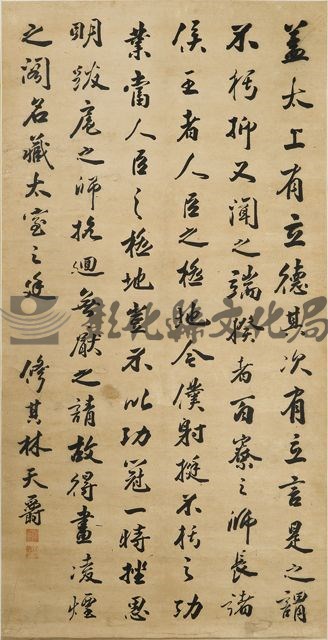 蓋太上有立德其次有立言是之謂
不朽抑又聞之端揆者百寮之師長諸
侯王者人臣之極地今僕射挺不朽之功
業當人臣之極地豈不以功冠一時挫思
明跋扈之師抗迴紇無厭之請故得畫凌煙
之閣名藏太室之廷
修其林天爵
彰化縣文化局